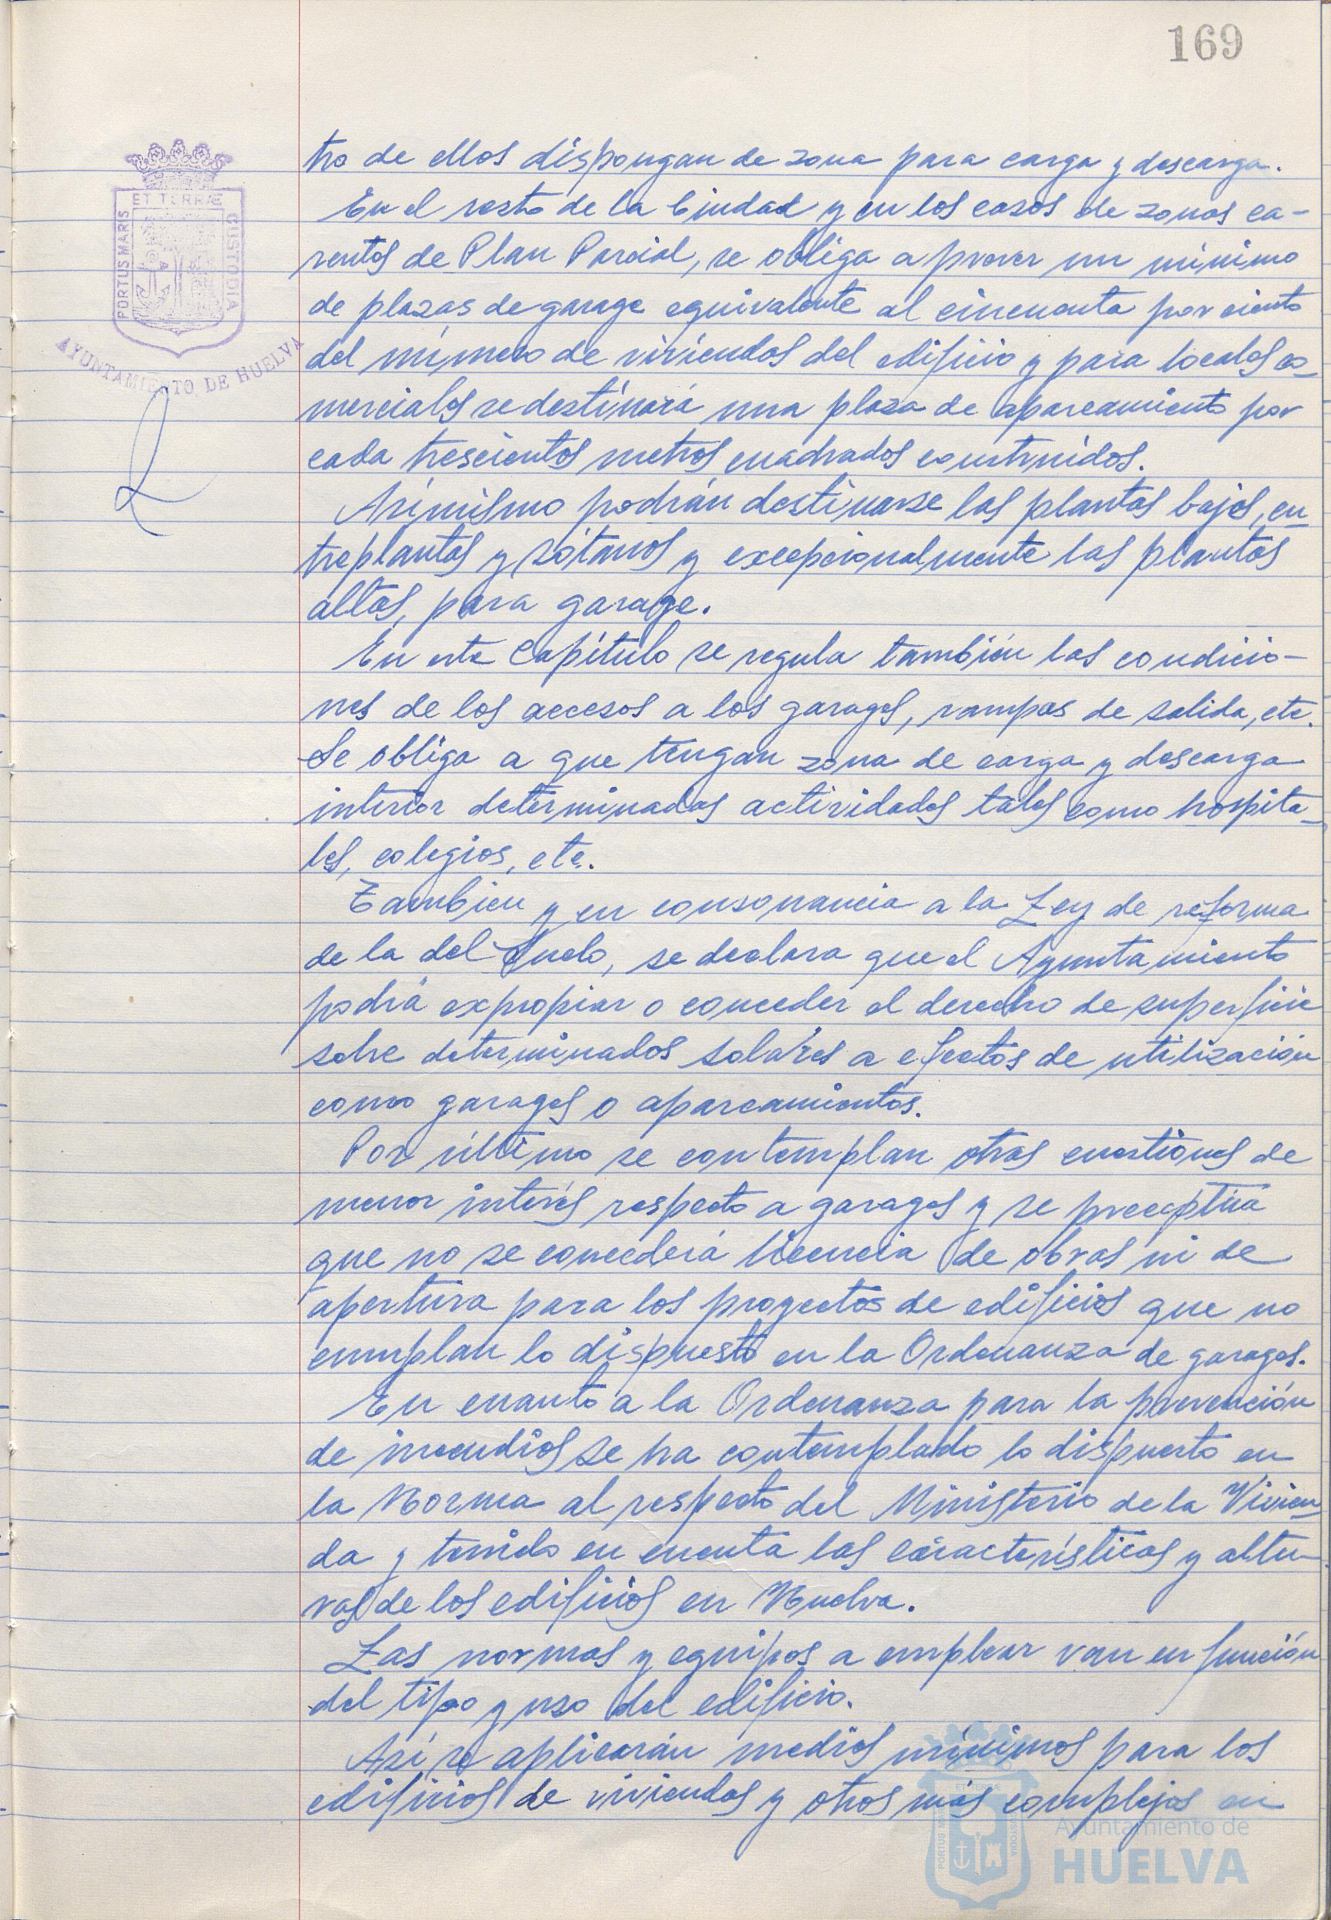 169
tro de ellos dispongan de zona para carga y descarga.
En el resto de la Ciudad y en los casos de zonas ca-
rentes de Plan Parcial, se obliga a prever un mínimo
de plazas de garage equivalente al cincuenta por ciento
del número de viviendas del edificio y para locales co-
merciales se destinará una plaza de aparcamiento por
cada trescientos metros cuadrados construidos.
Asímismo podrán destinarse las plantas bajas, en
treplantas y sótanos y excepcionalmente las plantas
altas, para garage.
En este Capítulo se regula también las condicio-
nes de los accesos a los garages, rampas de salida, etc.
Se obliga a que tengan zona de carga y descarga
interior determinadas actividades tales como hospita-
les, colegios, etc.
Tambien y en consonancia a la Ley de reforma
de la del Suelo, se declara que el Ayuntamiento
podrá expropiar o conceder el derecho de superficie
sobre determinados solares a efectos de utilización
como garages o aparcamientos.
Por último se contemplan otras cuestiones de
menor interés respecto a garages y se preceptúa
que no se concederá licencia de obras ni de
apertura para los proyectos de edificios que no
cumplan lo dispuesto en la Ordenanza de garages.
En cuanto a la Ordenanza para la prevención
de incendios se ha contemplado lo dispuesto en
la Norma al respecto del Ministerio de la Vivien
da y tenido en cuenta las características y altu-
ras de los edificios en Huelva.
Las normas y equipos a emplear van en función
del tipo y uso del edificio.
Así se aplicarán medios mínimos para los
edificios de viviendas y otros más complejos en
PORTUS MARIS ET TERRÆ CUSTODIA
AYUNTAMIENTO DE HUELVA
Ayuntamiento de
HUELVA